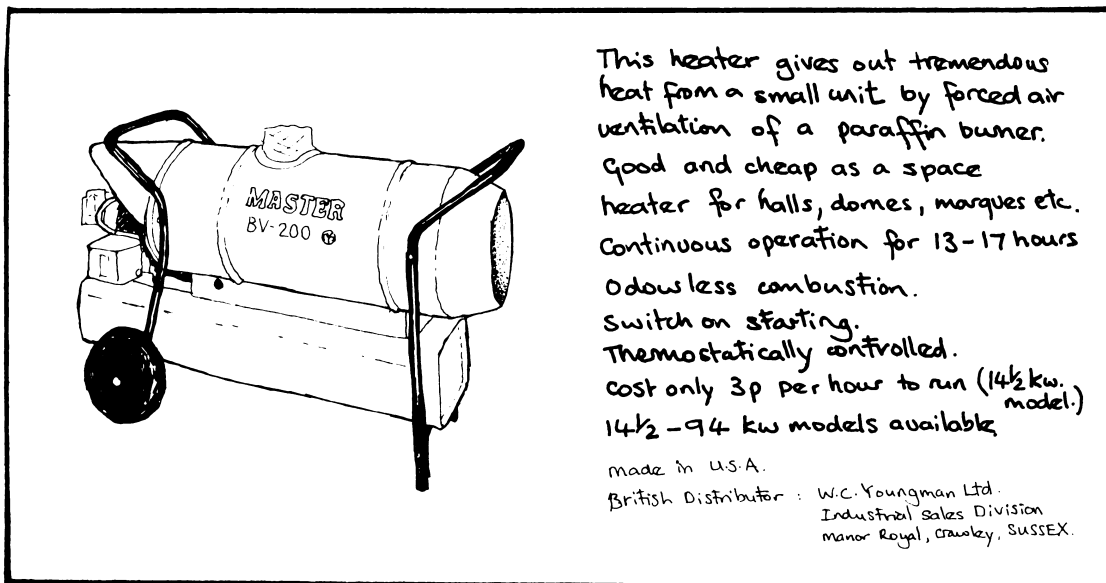 MASTER
BV-200
This heater gives out tremendous
heat from a small unit by forced air
ventilation of a paraffin burner.
Good and cheap as a space
heater for halls, domes, marques etc.
Continuous operation for 13-17 hours
Odourless combustion.
Switch on starting.
Thermostatically controlled.
cost only 3p per hour to run (14½ kw.
model.)
14½ - 94 kw models available,
made in U.S.A.
British Distributor : W.C. Youngman Ltd.
Industrial Sales Division
Manor Royal, Crawley, SUSSEX.